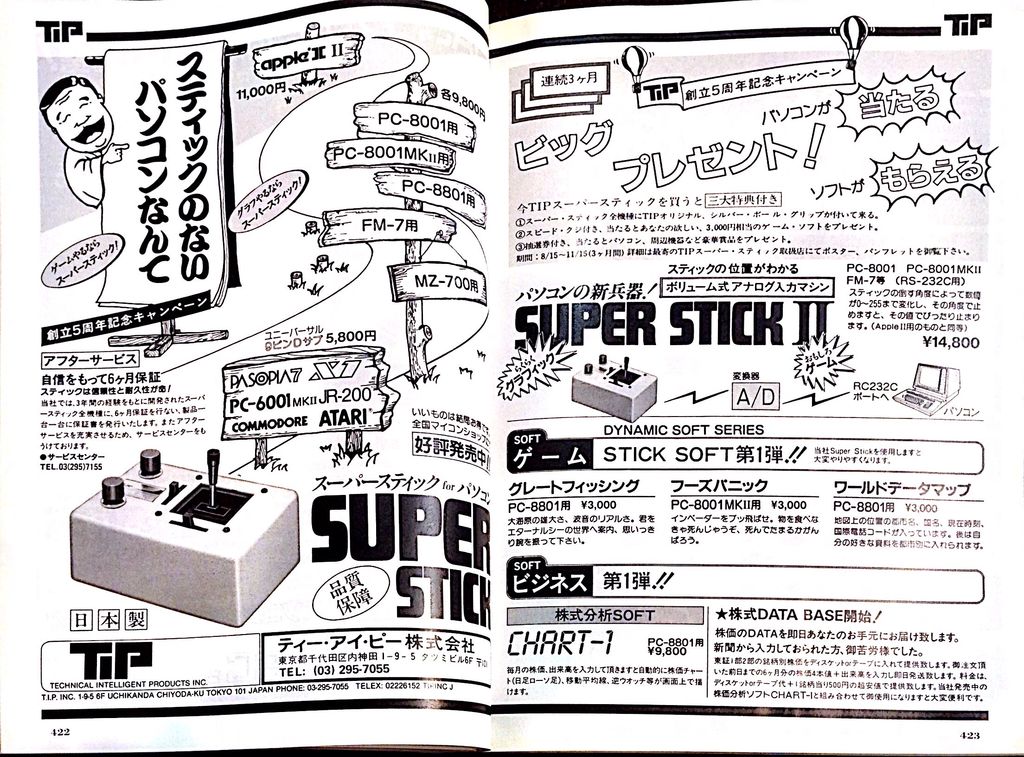 TIP
スティックのない
パソコンなんて
apple II
11,000円
各9,800円
PC-8001用
PC-8001MKII用
PC-8801用
FM-7用
MZ-700用
グラフやるなら
スーパースティック!
ゲームやるなら
スーパースティック!
創立5周年記念キャンペーン
アフターサービス
自信をもって6ヶ月保証
スティックは信頼性と耐久性が命!
当社では、3年間の経験をもとに開発されたスーパ
ースティック全機種に、6ヶ月保証を行ない、製品一
台一台に保証書を発行いたします。またアフター
サービスを充実させるため、サービスセンターをも
うけております。
●サービスセンター
TEL.03(295)7155
ユニバーサル
9ピンDサブ 5,800円
PASOPIA7 X1
PC-6001MKII JR-200
COMMODORE ATARI
いいものは結局お得です
全国マイコンショップで
好評発売中!
スーパースティック for パソコン
SUPER
STICK
品質
保障
日本製
TIP
TECHNICAL INTELLIGENT PRODUCTS INC.
ティー・アイ・ピー株式会社
東京都千代田区内神田1-9-5 タツミビル6F 〒101
TEL: (03) 295-7055
T.I.P. INC. 1-9-5 6F UCHIKANDA CHIYODA-KU TOKYO 101 JAPAN PHONE: 03-295-7055 TELEX: 02226152 TIPINC J
422
TIP
連続3ヶ月
TIP 創立5周年記念キャンペーン
ビッグ
プレゼント!
パソコンが 当たる
ソフトが もらえる
今TIPスーパースティックを買うと 三大特典付き
①スーパー・スティック全機種にTIPオリジナル、シルバー・ボール・グリップが付いて来る。
②スピード・クジ付き、当たるとあなたの欲しい、3,000円相当のゲーム・ソフトをプレゼント。
③抽選券付き、当たるとパソコン、周辺機器など豪華賞品をプレゼント。
期間:8/15〜11/15(3ヶ月間) 詳細は最寄のTIPスーパー・スティック取扱店にてポスター、パンフレットを御覧下さい。
スティックの位置がわかる
パソコンの新兵器! ボリューム式アナログ入力マシン
SUPER STICK II
PC-8001 PC-8001MKII
FM-7等 (RS-232C用)
スティックの倒す角度によって数値
が0〜255まで変化し、その角度で止
めますと、その値でぴったり止まり
ます。(Apple II用のものと同等)
¥14,800
らくらく
グラフィック
おもしろ
ゲーム
変換器
A/D
RC232C
ポートへ
パソコン
DYNAMIC SOFT SERIES
SOFT
ゲーム
STICK SOFT第1弾!!
当社Super Stickを使用しますと
大変やりやすくなります。
グレートフィッシング
PC-8801用 ¥3,000
大海原の雄大さ、波音のリアルさ。君を
エターナルシーの世界へ案内、思いっき
り腕を振って下さい。
フーズパニック
PC-8001MKII用 ¥3,000
インベーダーをブッ飛ばせ。物を食べなく
きゃ死んじゃうぞ、死んでたまるかがん
ばろう。
ワールドデータマップ
PC-8801用 ¥3,000
地図上の位置の都市名、国名、現在時刻、
国際電話コードが入っています。後は自
分の好きな資料を都市別に入れられます。
SOFT
ビジネス
第1弾!!
株式分析SOFT
CHART-1
PC-8801用
¥9,800
毎月の株価、出来高を入力して頂きますと自動的に株価チャー
ト(日足ローソク足)、移動平均線、逆ウオッチ等が画面上で描
けます。
★株式DATA BASE開始!
株価のDATAを即日あなたのお手元にお届け致します。
新聞から入力しておられた方、御苦労様でした。
東証1部2部の銘柄別株価をディスケットorテープに入れて提供致します。御注文頂
いた前日までの6ヶ月分の株価4本値+出来高を入力し即日発送致します。料金は、
ディスケットorテープ代+1銘柄当り500円の超安値で提供致します。当社発売中の
株価分析ソフトCHART-1と組み合わせて御使用になりますと大変便利です。
423